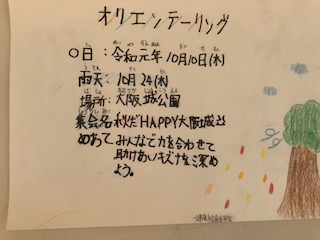 オリエンテーリング
〇日：令和元年10月10日(木)
雨天：10月24(木)
場所：大阪城公園
集会名：秋だHAPPY大阪城だ
めあて みんなで力を合わせて
助けあいキズナを深め
よう。